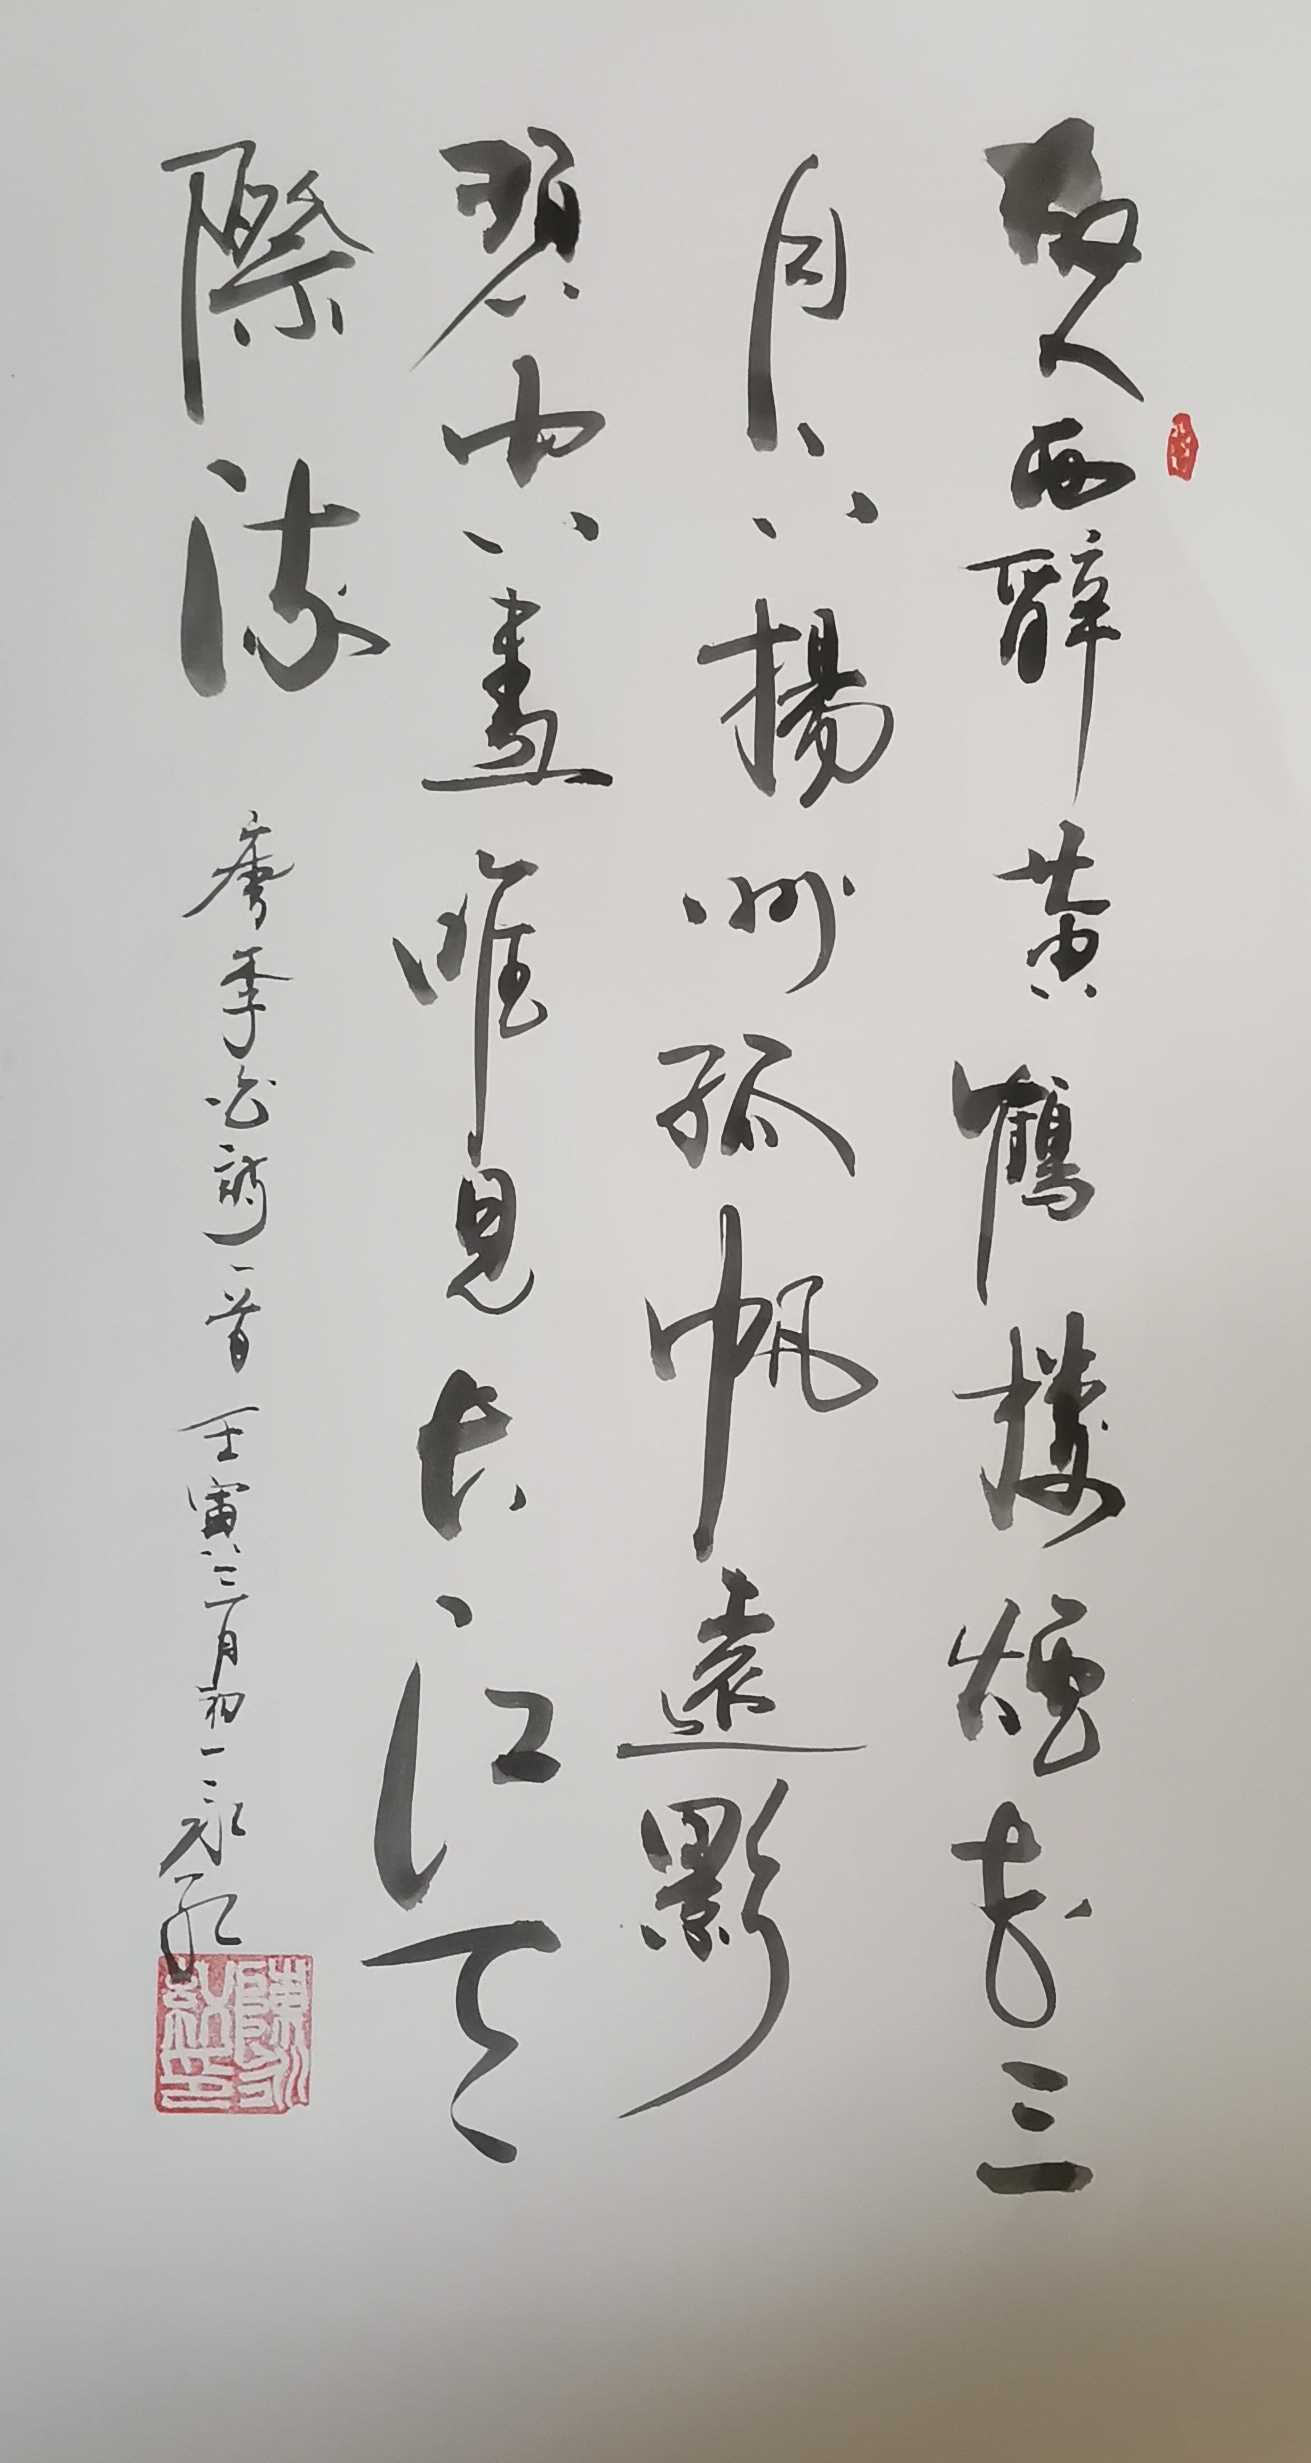 故人西辭黄鶴樓煙花三
月下揚州孤帆遠影
碧空盡唯見長江天
際流
唐李白詩一首 壬寅三月初一永紅
陳永紅印